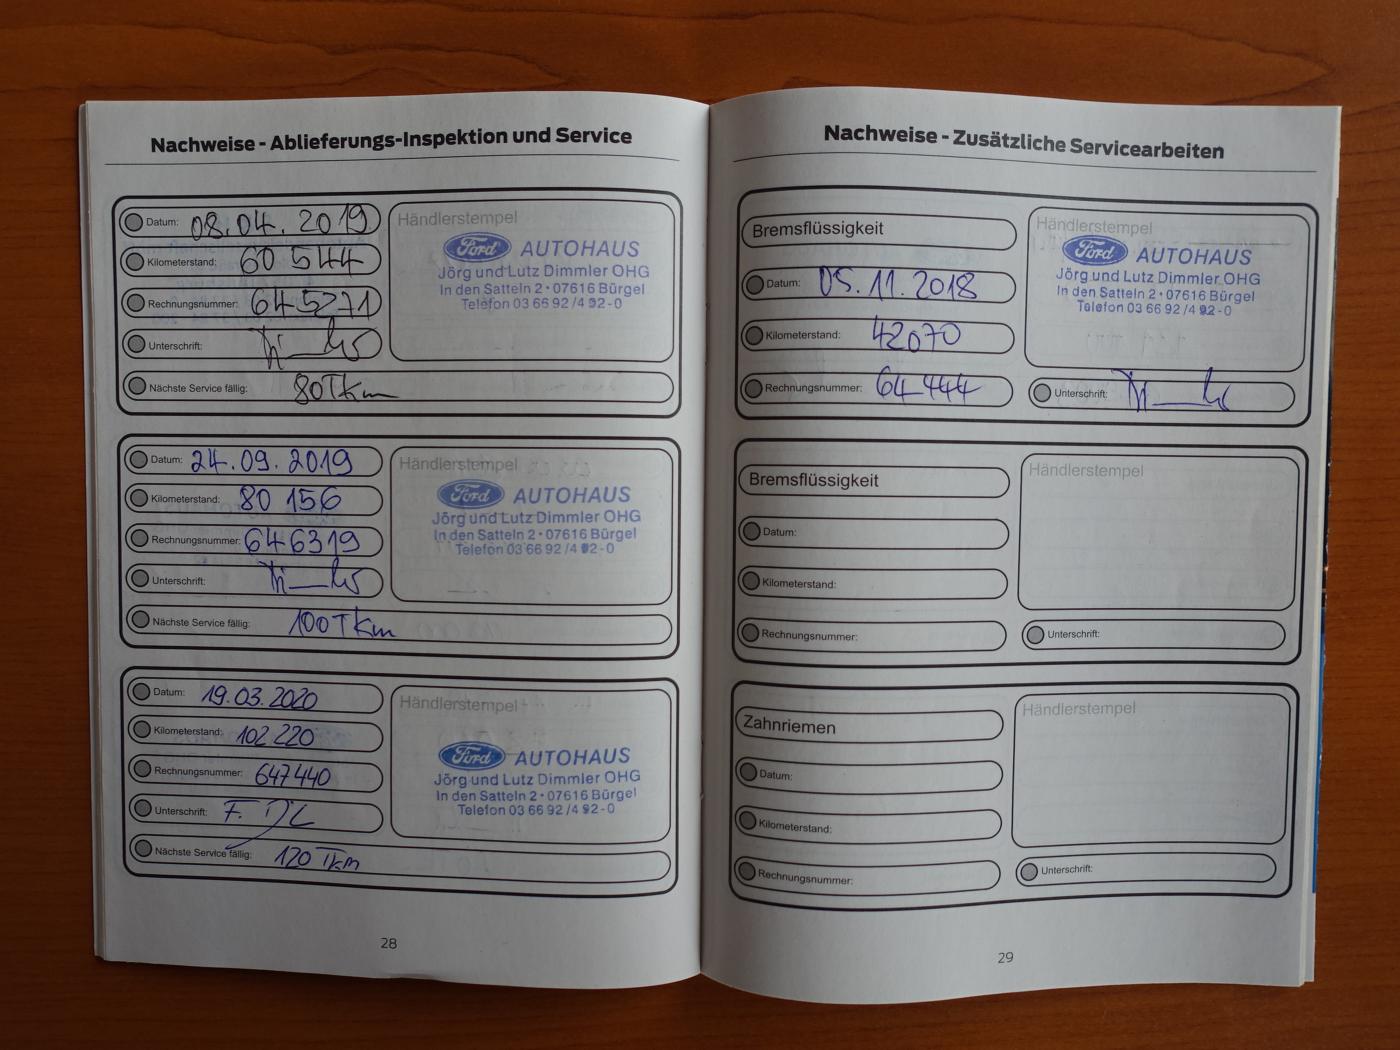 Nachweise - Ablieferungs-Inspektion und Service
Datum: 08.04.2019
Kilometerstand: 60 544
Rechnungsnummer: 645271
Unterschrift:
Nächste Service fällig: 80Tkm
Händlerstempel
Ford AUTOHAUS
Jörg und Lutz Dimmler OHG
In den Satteln 2 • 07616 Bürgel
Telefon 03 66 92 /4 92-0
Datum: 24.09.2019
Kilometerstand: 80 156
Rechnungsnummer: 646319
Unterschrift:
Nächste Service fällig: 100Tkm
Händlerstempel
Ford AUTOHAUS
Jörg und Lutz Dimmler OHG
In den Satteln 2 • 07616 Bürgel
Telefon 03 66 92 /4 92-0
Datum: 19.03.2020
Kilometerstand: 102 220
Rechnungsnummer: 647440
Unterschrift:
Nächste Service fällig: 120 Tkm
Händlerstempel
Ford AUTOHAUS
Jörg und Lutz Dimmler OHG
In den Satteln 2 • 07616 Bürgel
Telefon 03 66 92 /4 92-0
28
Nachweise - Zusätzliche Servicearbeiten
Bremsflüssigkeit
Datum: 05.11.2018
Kilometerstand: 42070
Rechnungsnummer: 64444
Händlerstempel
Ford AUTOHAUS
Jörg und Lutz Dimmler OHG
In den Satteln 2 • 07616 Bürgel
Telefon 03 66 92 /4 92-0
Unterschrift:
Bremsflüssigkeit
Datum:
Kilometerstand:
Rechnungsnummer:
Händlerstempel
Unterschrift:
Zahnriemen
Datum:
Kilometerstand:
Rechnungsnummer:
Händlerstempel
Unterschrift:
29